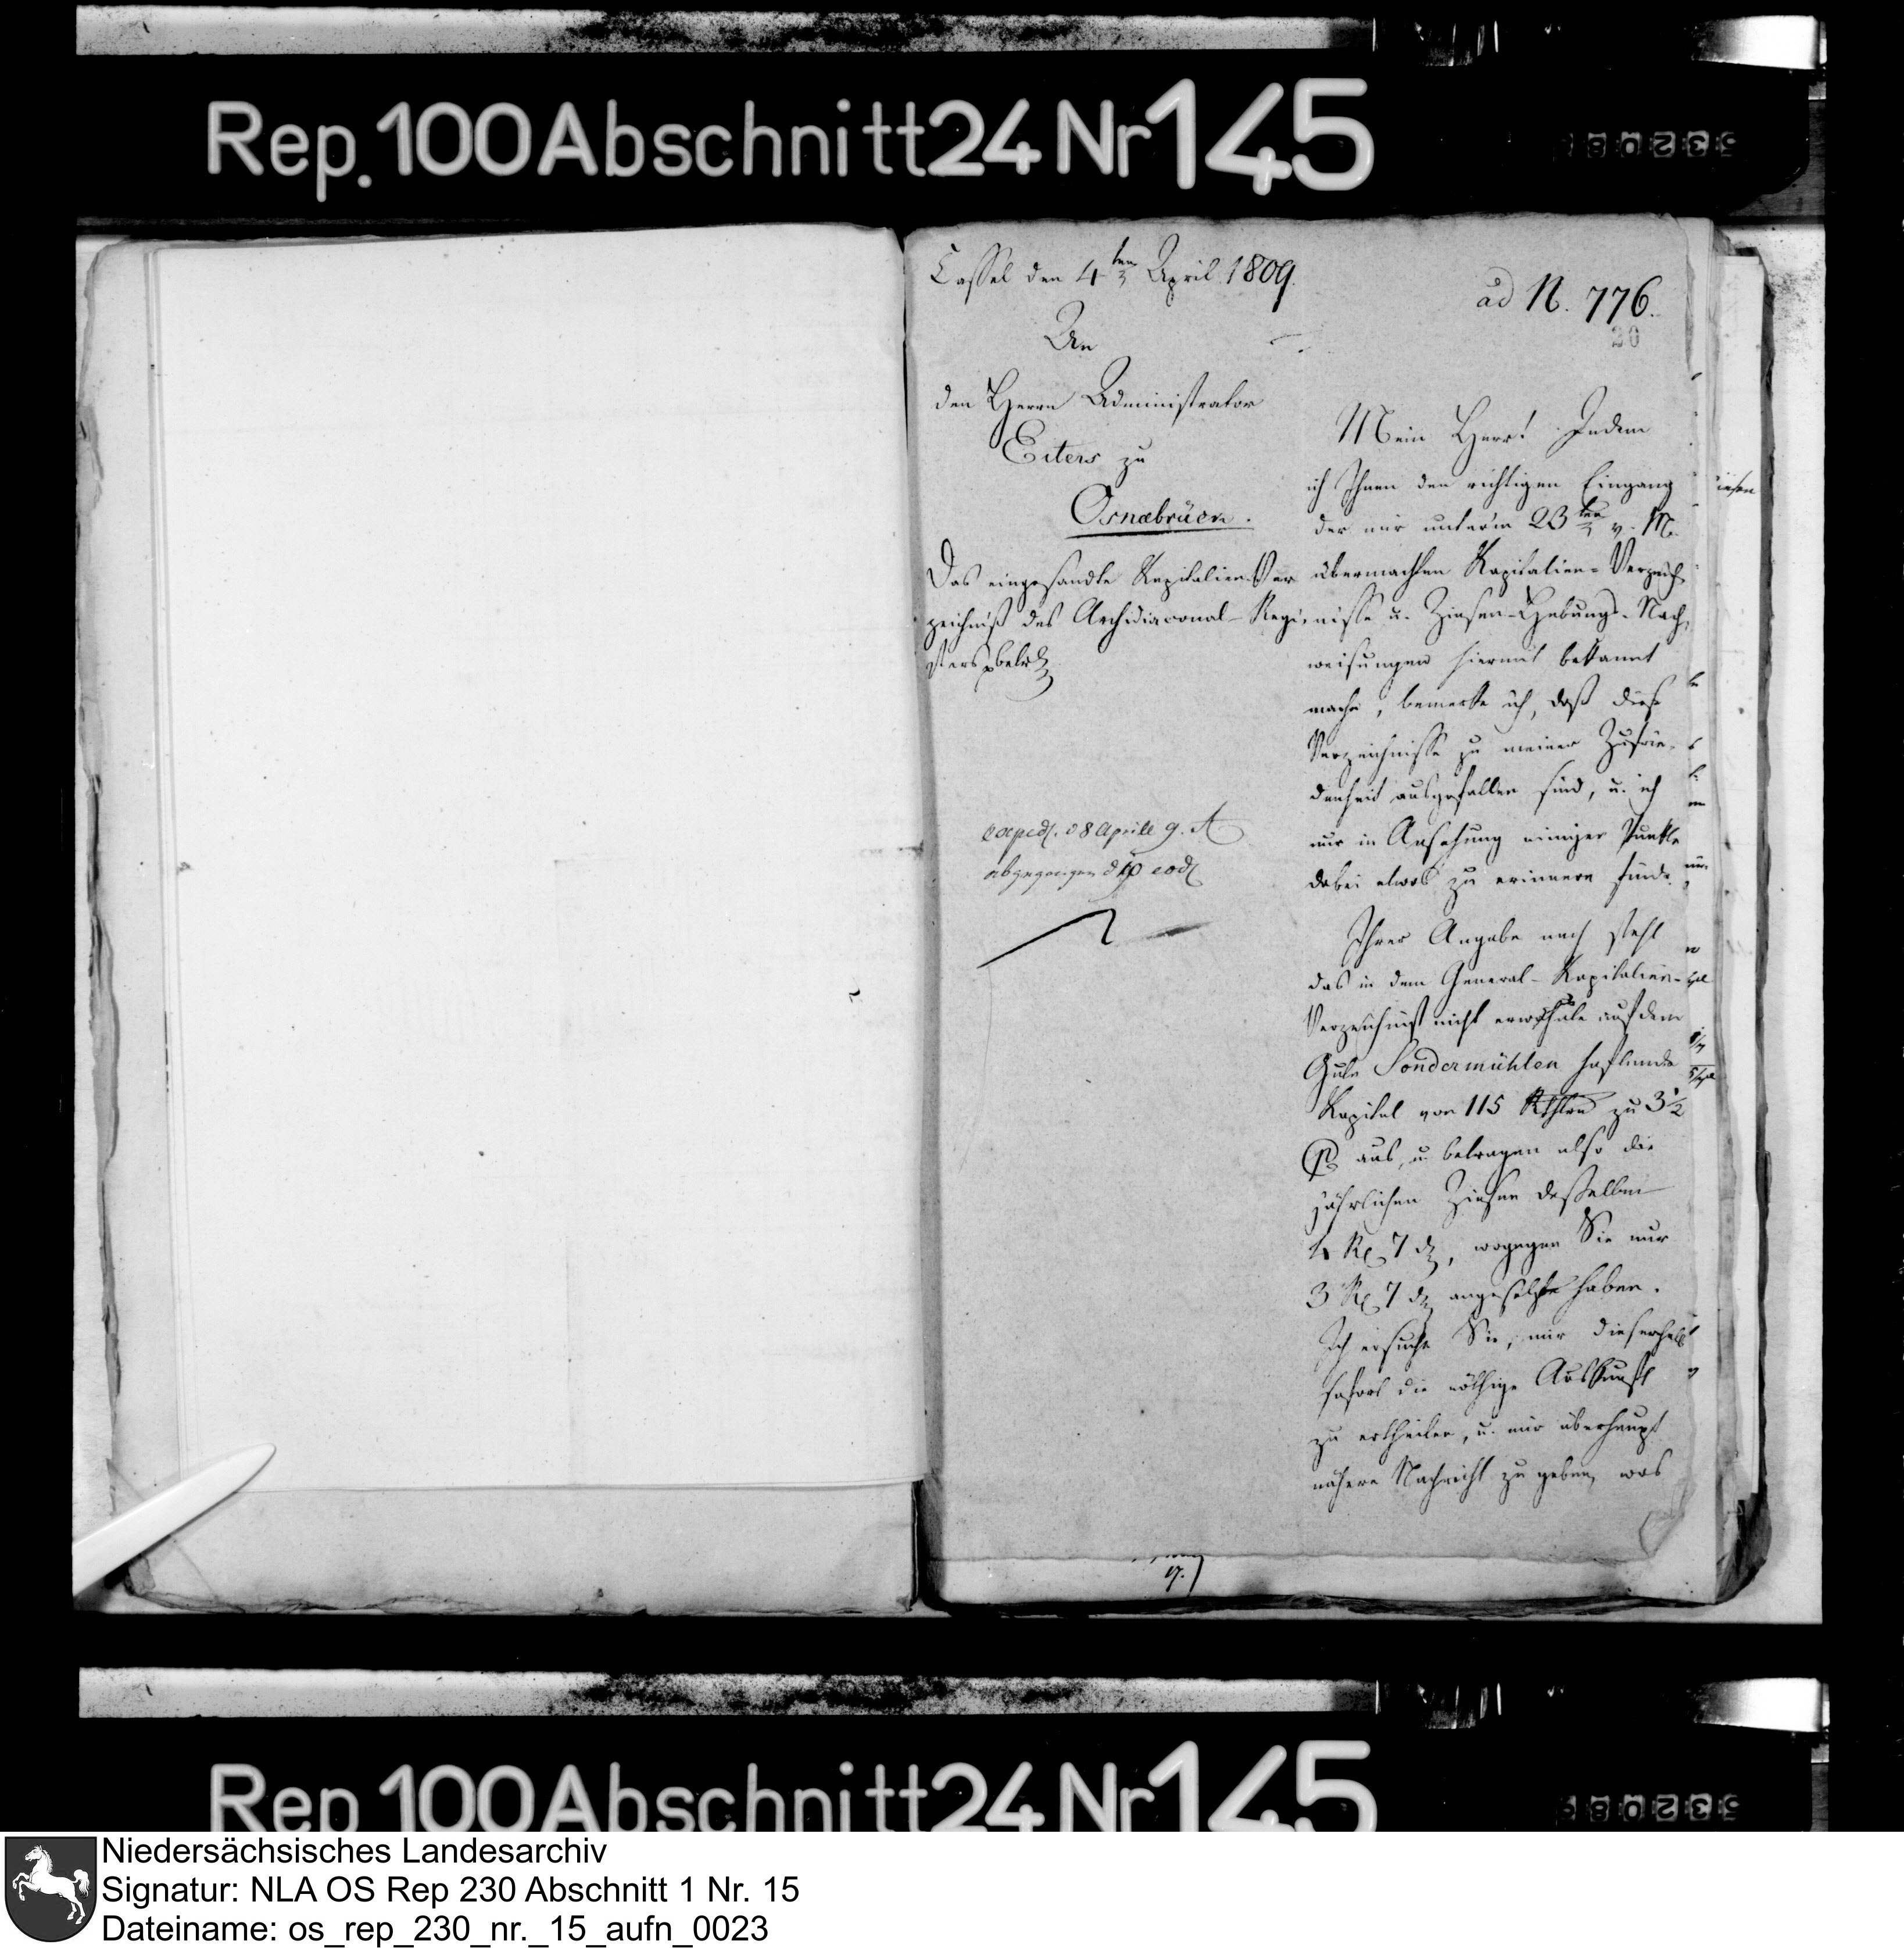 Rep. 100 Abschnitt 24 Nr 145
Cassel den 4ten April 1809.
ad N. 776.
20
An
den Herrn Administrator
Eiters zu
Osnabrück.
Das eingesandte Kapitalien-Ver
zeichniß des Archidiaconal-Regi,
sters betr.
exped. d 8 Aprill 9. A
abgegangen d eod
Mein Herr! Indem
ich Ihnen den richtigen Eingang
der mir unterm 23ten v. M.
übermachten Kapitalien-Verzeich
nisse u. Zinsen-Hebungs-Nach,
weisungen hiermit bekannt
mache, bemerke ich, daß diese
Verzeichnisse zu meiner Zufrie-
denheit ausgefallen sind, u. ich
nur in Ansehung einiger Punkte
dabei etwas zu erinnern finde.
Ihrer Angabe nach steht
das in dem General-Kapitalien-
Verzeichniß nicht erwähnte auf dem
Gute Sondermühlen haftende
Kapital von 115 Rthlrn zu 3 1/2
P aus, u. betragen also die
jährlichen Zinsen desselben
4 Rt 7 d, wogegen Sie nur
3 Rt 7 d angesetzt haben.
Ich ersuche Sie, mir dieserhalb
sofort die nöthige Auskunft
zu ertheilen, u. mir überhaupt
nähere Nachricht zu geben, was
17.
Rep 100 Abschnitt 24 Nr 145
Niedersächsisches Landesarchiv
Signatur: NLA OS Rep 230 Abschnitt 1 Nr. 15
Dateiname: os_rep_230_nr._15_aufn_0023